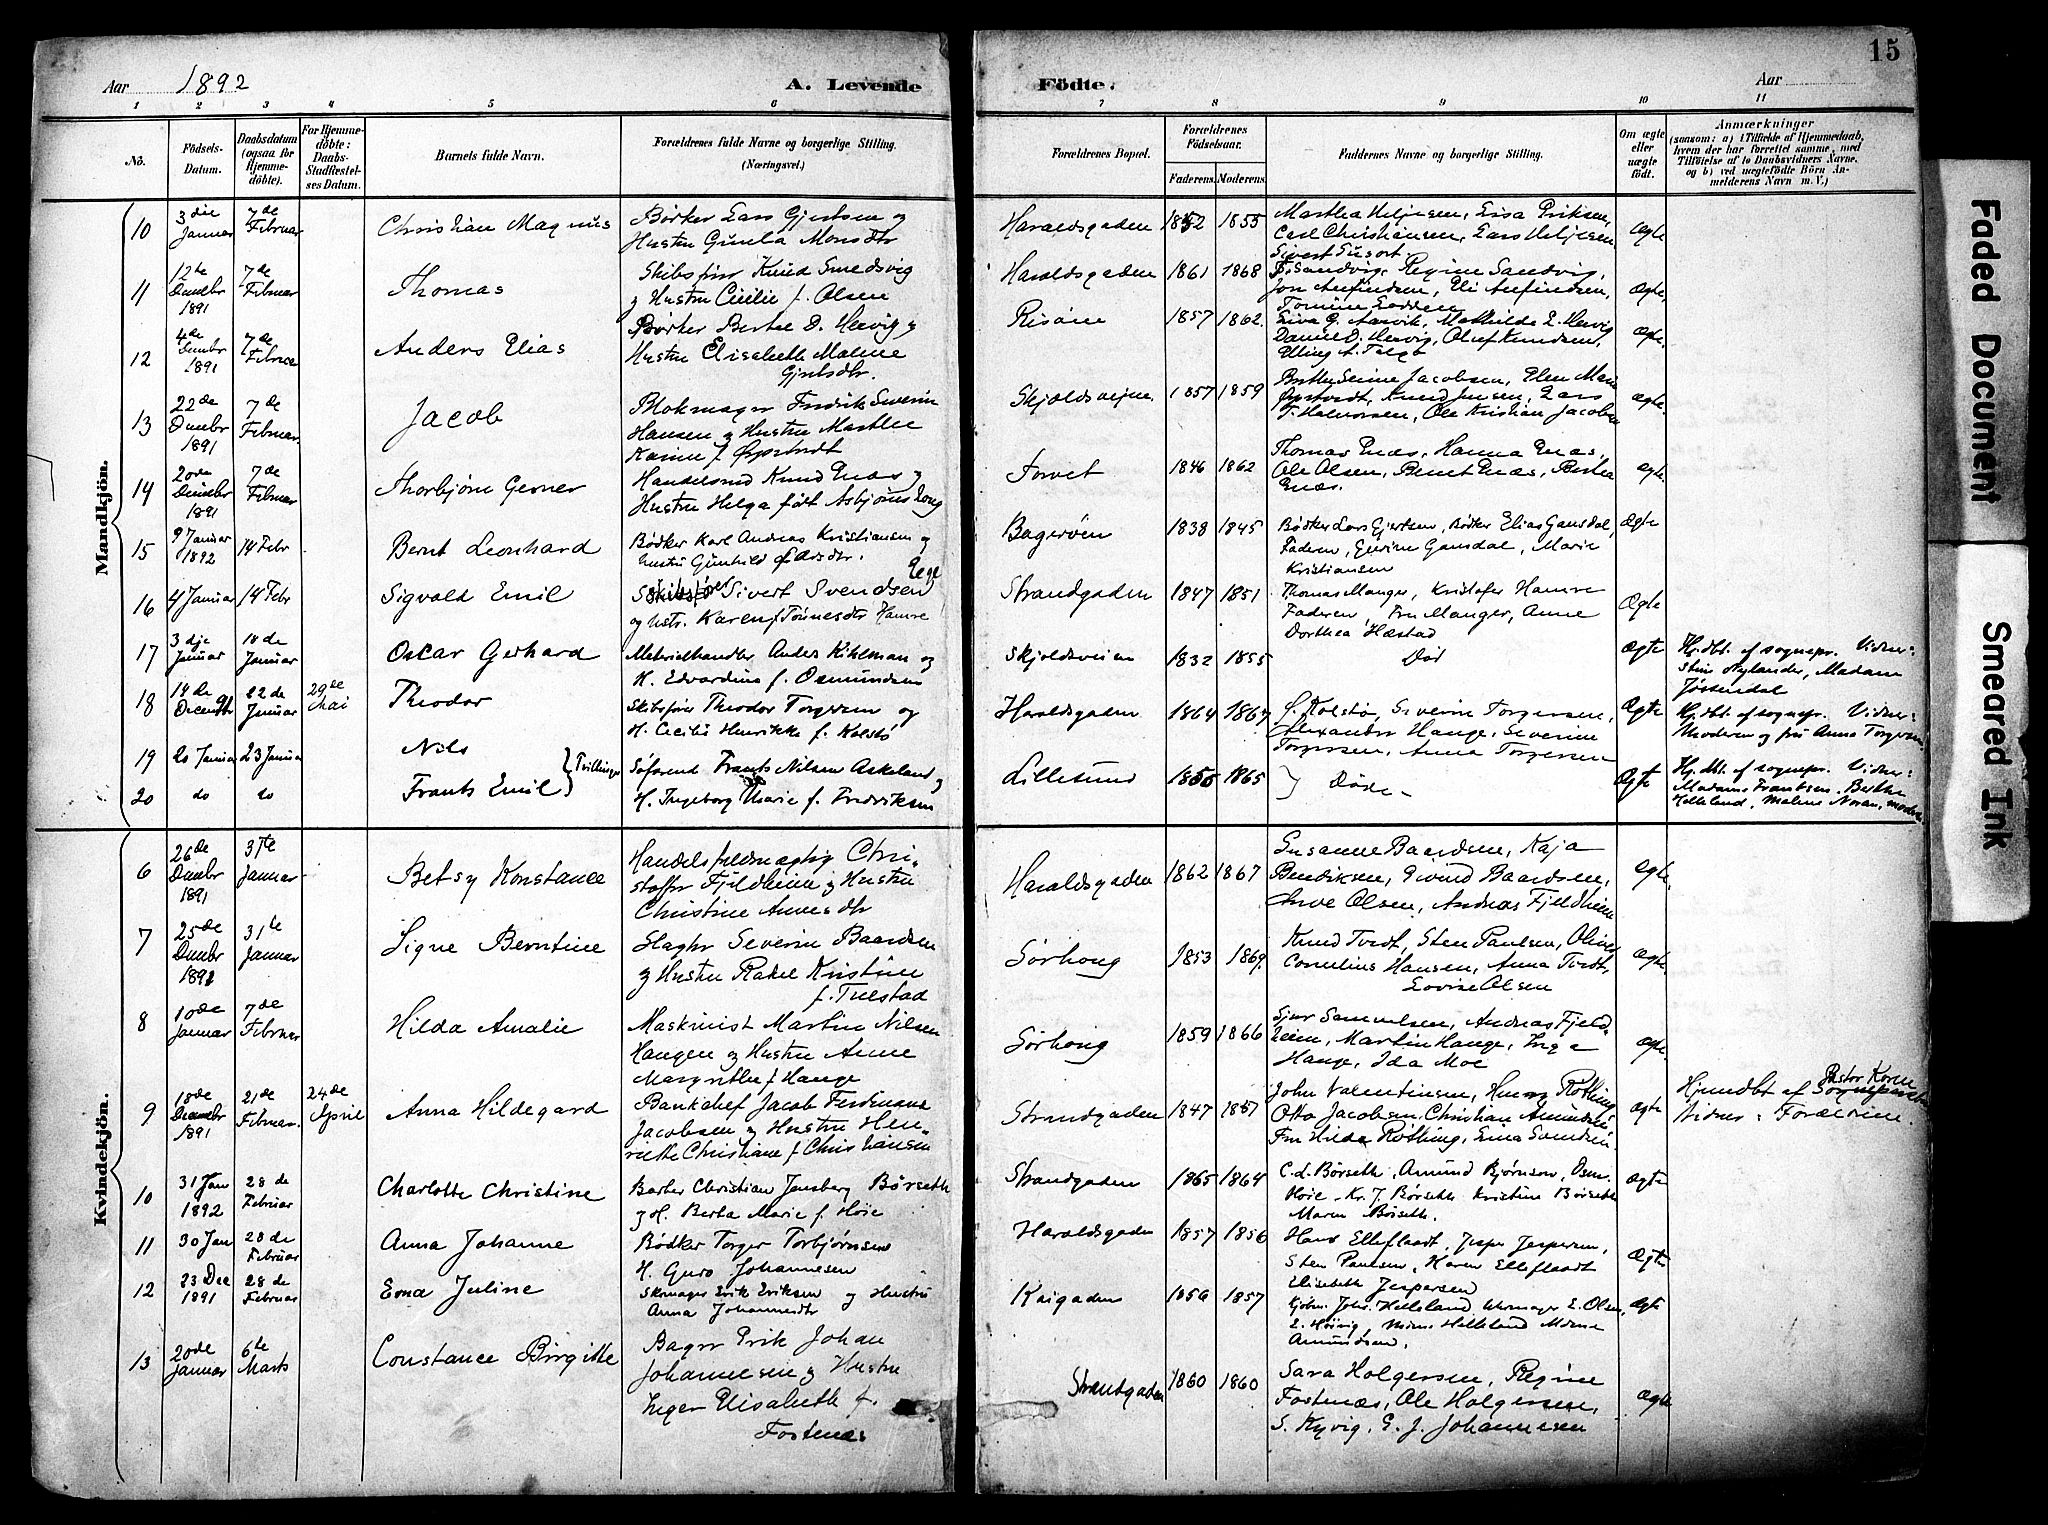 15
Aar 1892 A. Levende Födte. Aar
1 2 3 4 5 6 7 8 9 10 11
No.
Födsels-Datum.
Daabsdatum (ogsaa for Hjemme-döbte).
For Hjemme-döbte: Daabs-Stadfæstel-ses Datum.
Barnets fulde Navn.
Forældrenes fulde Navne og borgerlige Stilling.
(Næringsvei.)
Forældrenes Bopæl.
Forældrenes Födselsaar.
Faderens. Moderens.
Faddernes Navne og borgerlige Stilling.
Om ægte eller uægte födt.
Anmærkninger
(saasom: a) i Tilfælde af Hjemmedaab, hvem der har forrettet samme, med Tilföielse af to Daabsvidners Navne, og b) ved uægtefödte Börn An-melderens Navn m. V.)
Mandkjön.
10 3die Januar 7de Februar Christian Magnus Bødker Lars Gjertsen og
Hustru Gunila Monsdtr Haraldsgaden 1852 1855 Martha Viljesen, Lisa Eriksen,
Carl Christiansen, Lars Viljesen, Ægte
11 12te Decmbr 1891 7de Februar Thomas Skibsfører Knud Smedsvig
og Hustru Cecilie f. Olsen Haraldsgaden 1861 1868 Sandvig, Regine Sandvig,
Jon Anfindsen, Eli Anfindsen, Ægte
12 4de Decmbr 1891 7de Februar Anders Elias Bødker Bertel D. Hervig og
Hustru Elisabeth Malene
Gjertsdtr. Risøen 1857 1862. Mathilde L. Hervig
Daniel D. Hervig, Oluf Knudsen, Ægte.
13 22de Decmbr 1891 7de Februar. Jacob Blokmager Fredrik Severin
Hansen og Hustru Marthe
Karine f. Skjoldsveien 1857 1859 Jacobsen, Elen Marie
Knud Jensen, Lars
T. Halvorsen, Ole Kristian Jacobsen Ægte.
14 20de Decmbr 1891 7de Februar Thorbjørn Gerner Handelsmd Knud Enæs og
Hustru Helga født Asbjørns Torvet 1846 1862 Thomas Enæs, Hanna Enæs,
Ole Olsen, Bernt Enæs, Bertha
Enæs. Ægte.
15 9 Januar 1892 14 Febr Bernt Leonhard Bødker Karl Andreas Kristiansen og
Hustru Gunhild Bagerøen 1838 1845 Bødker Lars Gjertsen, Bødker Elias Gansdal,
Faderen, Gurine Gansdal, Marie
Kristiansen Ægte
16 4 Januar 14 Febr Sigvald Emil Sivert Svendsen
og Hstr. Karen f Tønnesdtr Hamre Strandgaden 1847 1851 Thomas Manger, Kristofer Hamre
Faderen, Fru Manger, Anne
Dorthea Hæstad Ægte
17 3dje Januar 18de Januar Oscar Gerhard Materialhandler Anders Kihlman og
H. Edvardine f. Osmundsen Skjoldsveien 1832 1855 Død Ægte Hj.dbt. af sognepr. Vidner:
Stine Nylander, Madam
Jøssendal
18 14de Decembr 91 22de Januar 29de Mai Theodor Skibsfører Theodor Torgersen og
H. Cecilie Henrikke f. Kolstø Haraldsgaden 1864 1867 Kolstø, Severin Torgersen,
Alexander Hauge, Severine
Torgersen, Anna Torgersen Ægte Hj.dbt. af sognepr. Vidner:
Moderen og fru Anna Torgersen.
19 20 Januar 23 Januar Nils
20 do do Frants Emil
} Tvillinger Søfarend Frants Nilsen Askeland og
H. Ingeborg Marie f. Fredriksen Lillesund 1865 } Døde. Ægte Hj. dbt. af sognepr. Vidner:
Madame Frantsen, Berthe
Helleland, Malene Noran,
Kvindekjön.
6 26de Decmbr 1891 31te Januar Betsy Konstance Handelsfuldmægtig Chri-
stoffer Fjeldheim og Hustru
Christine Annesdtr Haraldsgaden 1862 1867 Susanne Baardsen, Kaja
Bendiksen, Eivind Baardsen,
Olsen, Andreas Fjeldheim Ægte.
7 25de Decmbr 1891 31te Januar Signe Berntine Slagter Severin Baardsen
og Hustru Rakel Kristine
f. Tuestad Sørhoug 1853 1869. Knud Tvedt, Sten Paulsen, Oliver
Cornelius Hansen, Anna Tvedt,
Lovise Olsen Ægte.
8 10de Januar 7de Februar Hilda Amalie Maskinist Martin Nilsen
Haugen og Hustru Anne
Margrethe f Hauge Sørhoug 1859 1866 Sjur Samuelsen, Andreas Fjeld-
heim, Martin Hauge, Inga
Hauge, Ida Moe Ægte.
9 18de Decembr 1891 21de Februar. 24de April Anna Hildegard Bankchef Jacob Ferdinand
Jacobsen og Hustru Hen-
riette Christiane f Christiansen Strandgaden 1847 1851 John Valentinsen, Henry Røthing
Otto Jacobsen, Christian Amundsen
Fru Hilda Røthing, Erna Ægte Hjemdbt af Pastor Koren
Vidner: Forældrene.
10 31 Jan 1892 28de Februar Charlotte Christine Barber Christian Jensberg Børseth
og H. Berta Marie f. Høie Strandgaden 1865 1864 C. L. Børseth, Amund Bjørnson, Osm.
Høie, Kr. J. Børseth, Kristine Børseth
Maren Børseth. Ægte
11 30 Jan 28de Februar Anna Johanne Bødker Torger Torbjørnsen
H. Guro Johannesen Haraldsgaden 1857 1856 Hans Elleflaadt, Jesper Jespersen,
Sten Paulsen, Karen Elleflaadt
Elisabeth Jespersen Ægte
12 23 Dec 1891 28de Februar Erna Juline Skomager Erik Eriksen og Hustru
Anna Johannesdtr Kaigaden 1856 1857 Kjøbm. Johs. Helleland, Urmager E. Olsen,
E. Høivig, Helleland
Amundsen. Ægte
13 20de Januar 6te Marts Constance Birgitte Bager Erik Johan
Johannesen og Hustru
Inger Elisabeth f.
Fostenæs Strandgaden 1860 1860 Sara Holgersen, Regine
Fostenæs, Ole Holgersen,
S. Kyvig, E. J. Johannesen Ægte
Faded Document
Smeared Ink